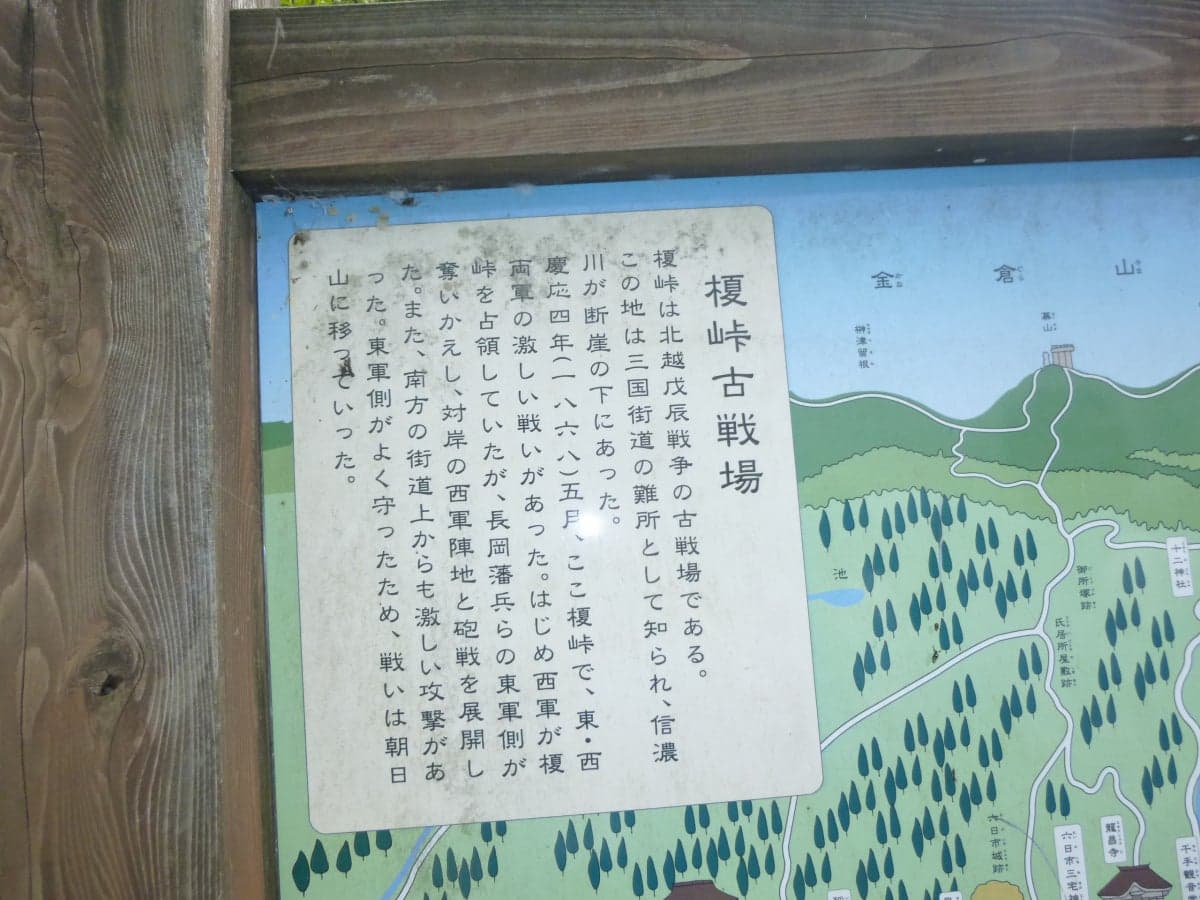 榎峠古戦場
榎峠は北越戊辰戦争の古戦場である。
この地は三国街道の難所として知られ、信濃
川が断崖の下にあった。
慶応四年(一八六八)五月、ここ榎峠で、東・西
両軍の激しい戦いがあった。はじめ西軍が榎
峠を占領していたが、長岡藩兵らの東軍側が
奪いかえし、対岸の西軍陣地と砲戦を展開し
た。また、南方の街道上からも激しい攻撃があ
った。東軍側がよく守ったため、戦いは朝日
山に移っていった。
金倉山
かなくらやま
墓山
榊津留根
池
十二神社
御所塚跡
氏居所屋敷跡
六日市城跡
六日市三宅神
龍昌寺
千手観音堂